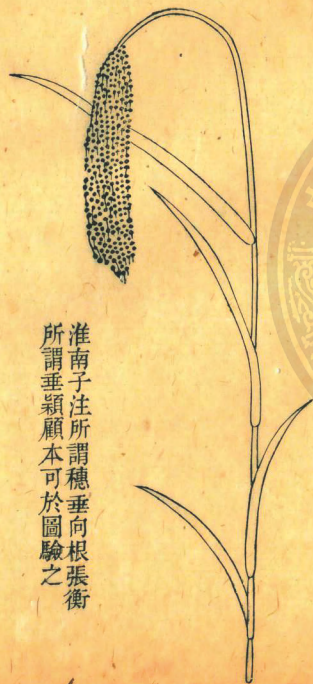 淮南子注所謂穗垂向根張衡
所謂垂穎顧本可於圖驗之